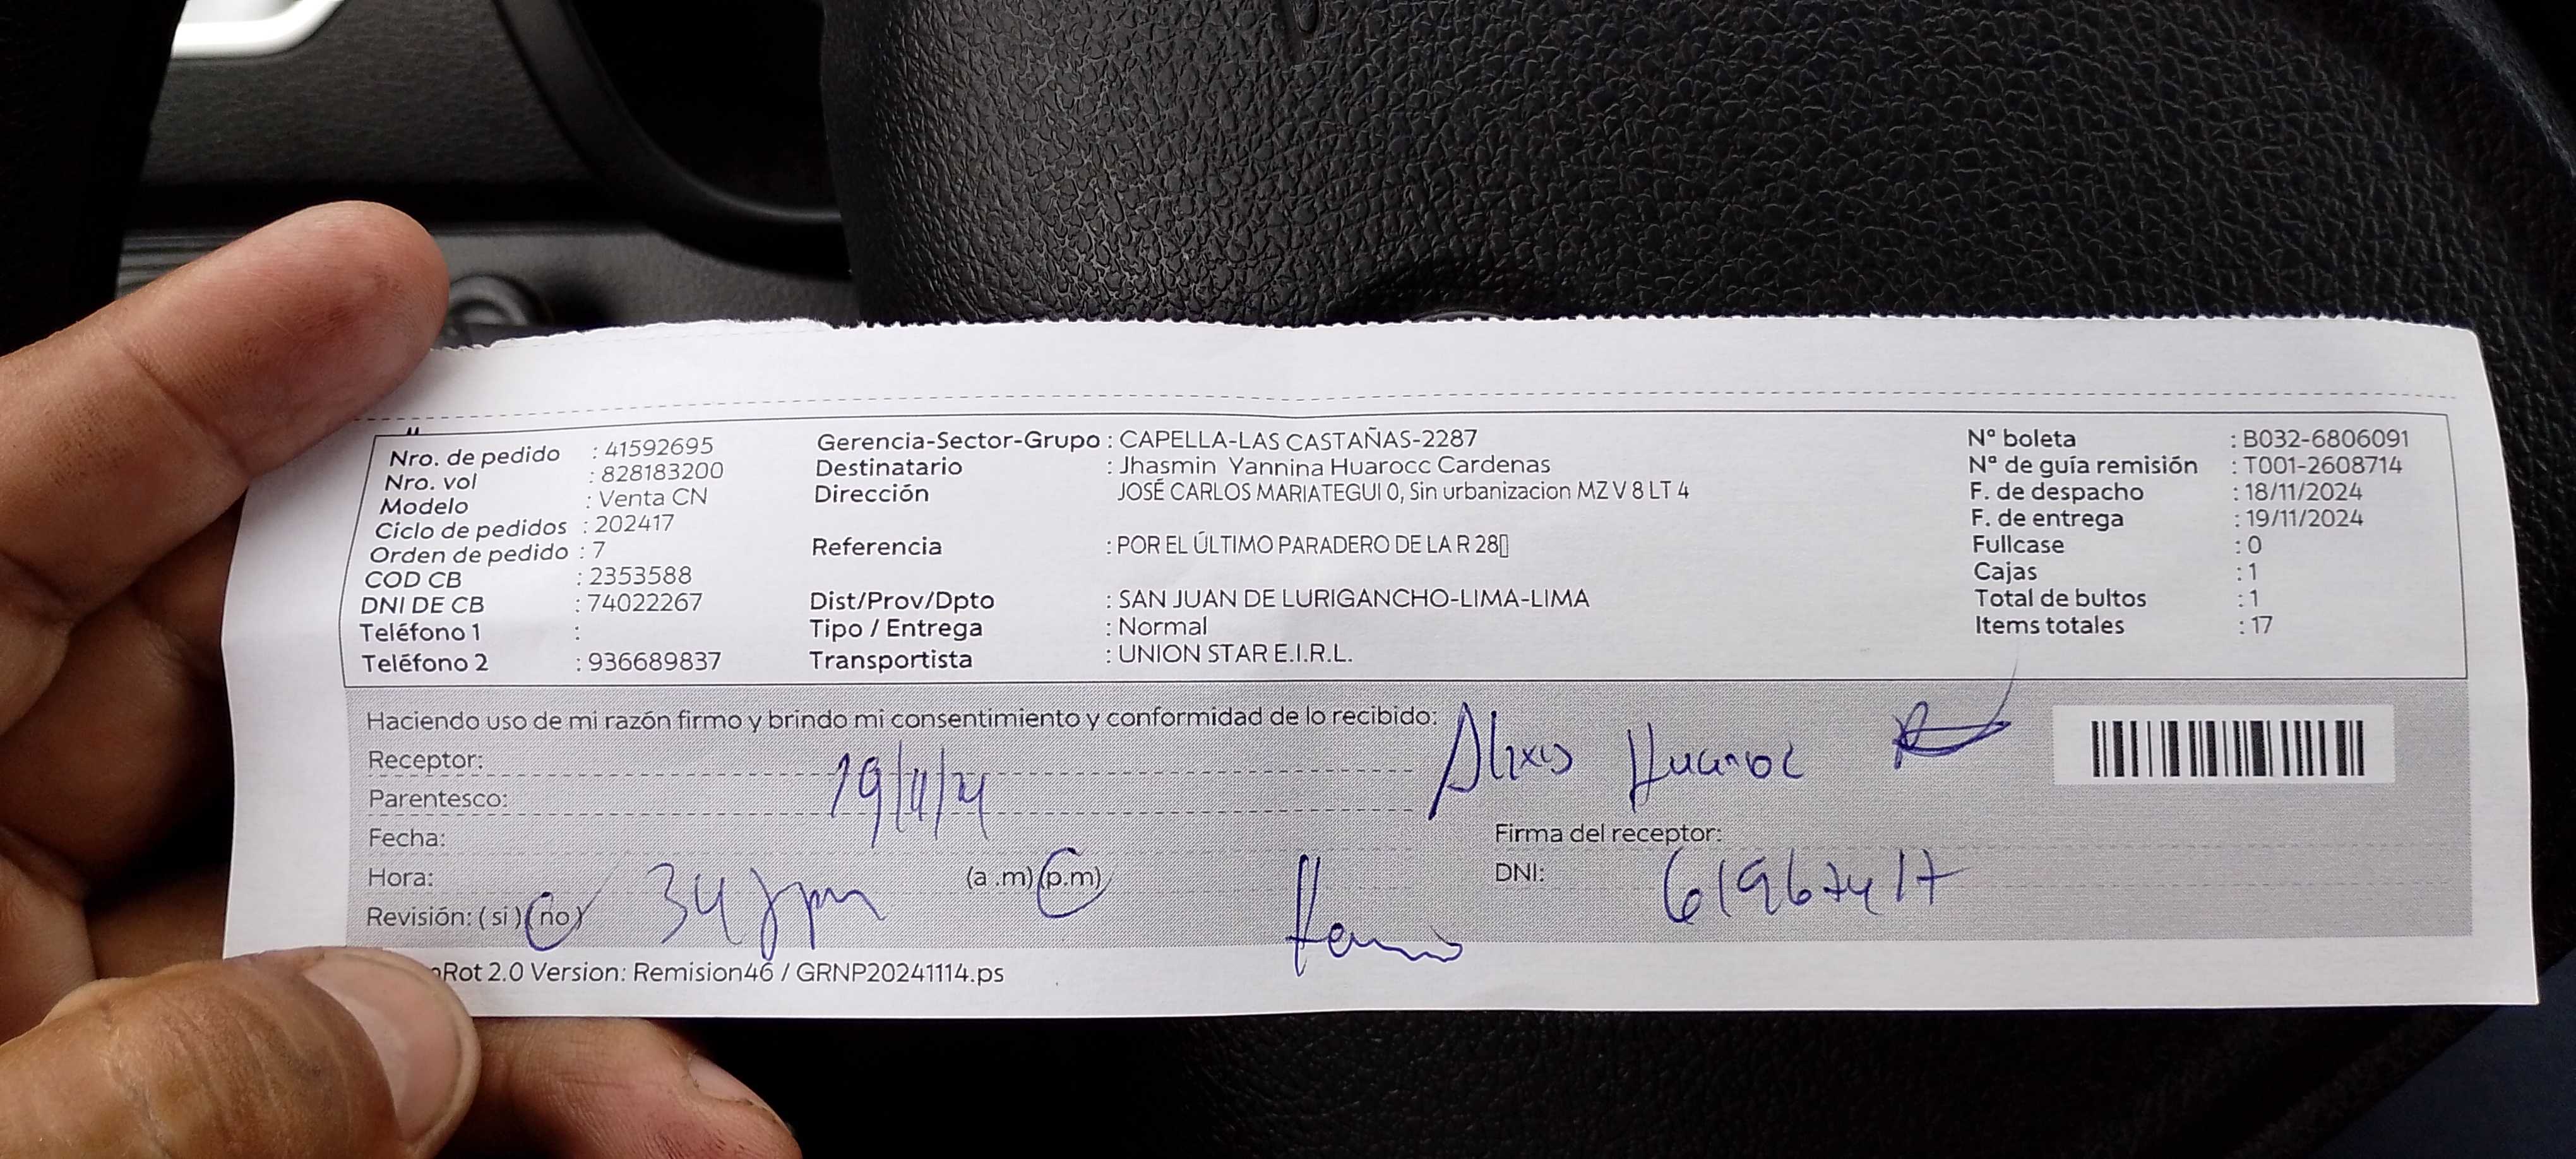 Nro. de pedido : 41592695
Nro. vol : 828183200
Modelo : Venta CN
Ciclo de pedidos : 202417
Orden de pedido : 7
COD CB : 2353588
DNI DE CB : 74022267
Teléfono 1 :
Teléfono 2 : 936689837
Gerencia-Sector-Grupo : CAPELLA-LAS CASTAÑAS-2287
Destinatario : Jhasmin Yannina Huarocc Cardenas
Dirección JOSÉ CARLOS MARIATEGUI 0, Sin urbanizacion MZ V 8 LT 4
Referencia : POR EL ÚLTIMO PARADERO DE LA R 28
Dist/Prov/Dpto : SAN JUAN DE LURIGANCHO-LIMA-LIMA
Tipo / Entrega : Normal
Transportista : UNION STAR E.I.R.L.
Nº boleta : B032-6806091
Nº de guía remisión : T001-2608714
F. de despacho : 18/11/2024
F. de entrega : 19/11/2024
Fullcase : 0
Cajas : 1
Total de bultos : 1
Items totales : 17
Haciendo uso de mi razón firmo y brindo mi consentimiento y conformidad de lo recibido:
Receptor:
Parentesco:
19/11/24
Fecha:
Hora: (a .m) (p.m)
Revisión: ( si ) (no)
Huaroc
Firma del receptor:
DNI: 61967417
Rot 2.0 Version: Remision46 / GRNP20241114.ps